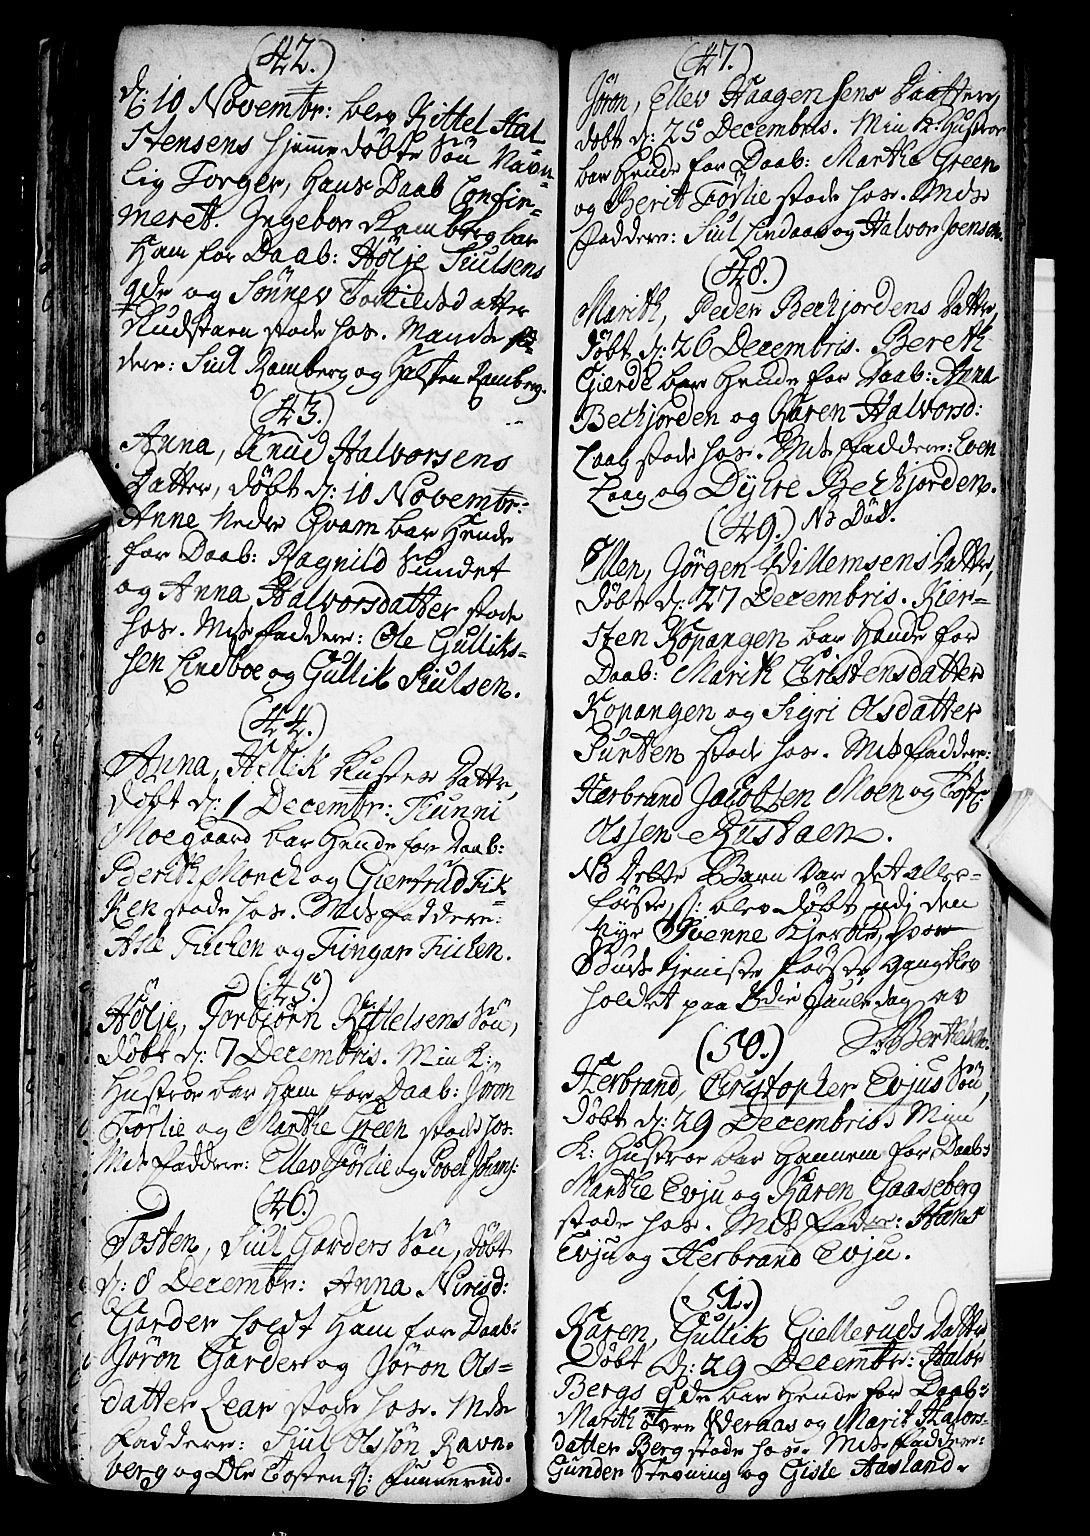 (42.)
d: 10 Novembr: blev Kittel Hal
stensens hjemmedøbte Søn Navn-
lig Torger, hans Daab Confir-
meret. Ingebor Ramberg bar
Ham for Daab: Hølje Siulsens
qde og Sønnev Torkildsdatter
Rudstaen stode hos. Mands fad-
dere: Siul Ramberg og Halsten Ramberg.
(43.)
Anna, Knud Halvorsens
Datter, døbt d: 10 Novembr:
Anne Nedre Qvam bar Hende
for Daab: Ragnild Sundet
og Anna Halvorsdatter stode
hos. Mds faddere: Ole Gulliks-
sen Lindboe og Gullik Siulsen.
(44.)
Anna, Datter,
døbt d: 1 Decembr: Gunni
Moegaard bar Hende for Daab:
Berith Morch og Giertrud Fik
Ken stode hos. Mds faddere:
Asle Fichen og Fingar Fichen.
(45.)
Hølje, Torbiørn Kittelsens Søn,
døbt d: 7 Decembris. Min K:
Hustroe bar Ham for Daab: Jøron
Førlie og Marthe Green stode hos.
Mds faddere: Ellev Førlie og Povel Johans:
(46.)
Tosten, Siul Garders Søn, døbt
d: 8 Decembr: Anna Nirisd:
Garder holdt Ham for Daab:
Jøron Garder og Jøron Ols-
datter Lear stode hos. Mds
faddere: Siul Olssøn Ravn-
berg og Ole Tostens: Funnerud.
(47.)
Jøron, Ellev Haagensens Daatter,
døbt d: 25 Decembris. Min K: Hustroe
bar Hende for Daab: Martha Green
og Berit Førlie stode hos. Mds
faddere: Siul Lindaas og Halvor Joensen.
(48.)
Marith, Peder Bechjordens Datter,
døbt d: 26 Decembris. Bereth
Gierde bar Hende for Daab: Anna
Bechjorden og Karen Halvorsd:
Laag stode hos. Mds faddere: Even
Laag og Dijkre Bechjorden.
(49.) NB Død.
Ellen, Jørgen Willemsens Datter,
døbt d: 27 Decembris. Kier-
sten Kopangen bar Hende for
Daab: Marith Christensdatter
Kopangen og Sigri Olsdatter
Surten stode hos. Mds faddere:
Herbrand Jacobssen Moen og
Olssen Rustaen.
NB Dette Barn var det aller-
første s: blev døbt udj den
Nye Svenne Kjerke, hvor
Guds tjeniste første Gang blev
holdet paa 3die Jule dag av
Bertelsen
(50.)
Herbrand, Christopher Evjus Søn,
døbt d: 29 Decembris. Min
K: Hustroe bar Hannem for Daab:
Marthe Evju og Karen Gaaseberg
stode hos. Mds faddere: Hans
Evju og Herbrand Evju.
(51.)
Karen, Gullik Gielleruds Datter
Døbt d: 29 Decembr: Halvor
Bergs qde bar Hende for Daab:
Marith Øderaas og Marit Halvors-
datter Berg stode hos. Mds faddere:
Gunder Stevning og Gisle Aasland.